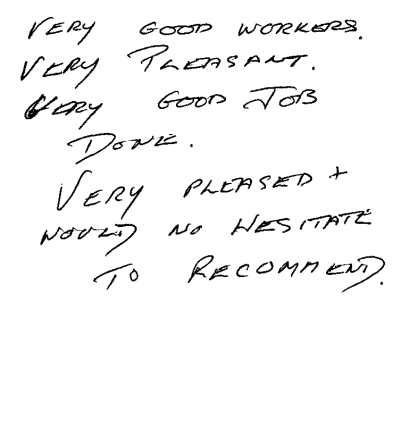 VERY GOOD WORKERS.
VERY PLEASANT.
VERY GOOD JOB
DONE.
VERY PLEASED +
WOULD NO HESITATE
TO RECOMMEND.